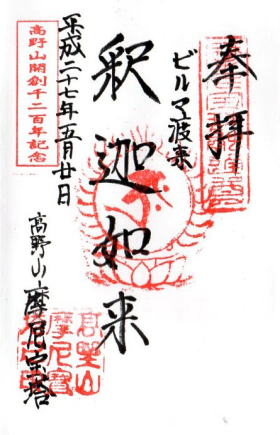 奉拝
ビルマ渡来
釈迦如来
平成二十七年五月廿日
高野山開創千二百年記念
高野山摩尼宝塔
高野山
摩尼寳